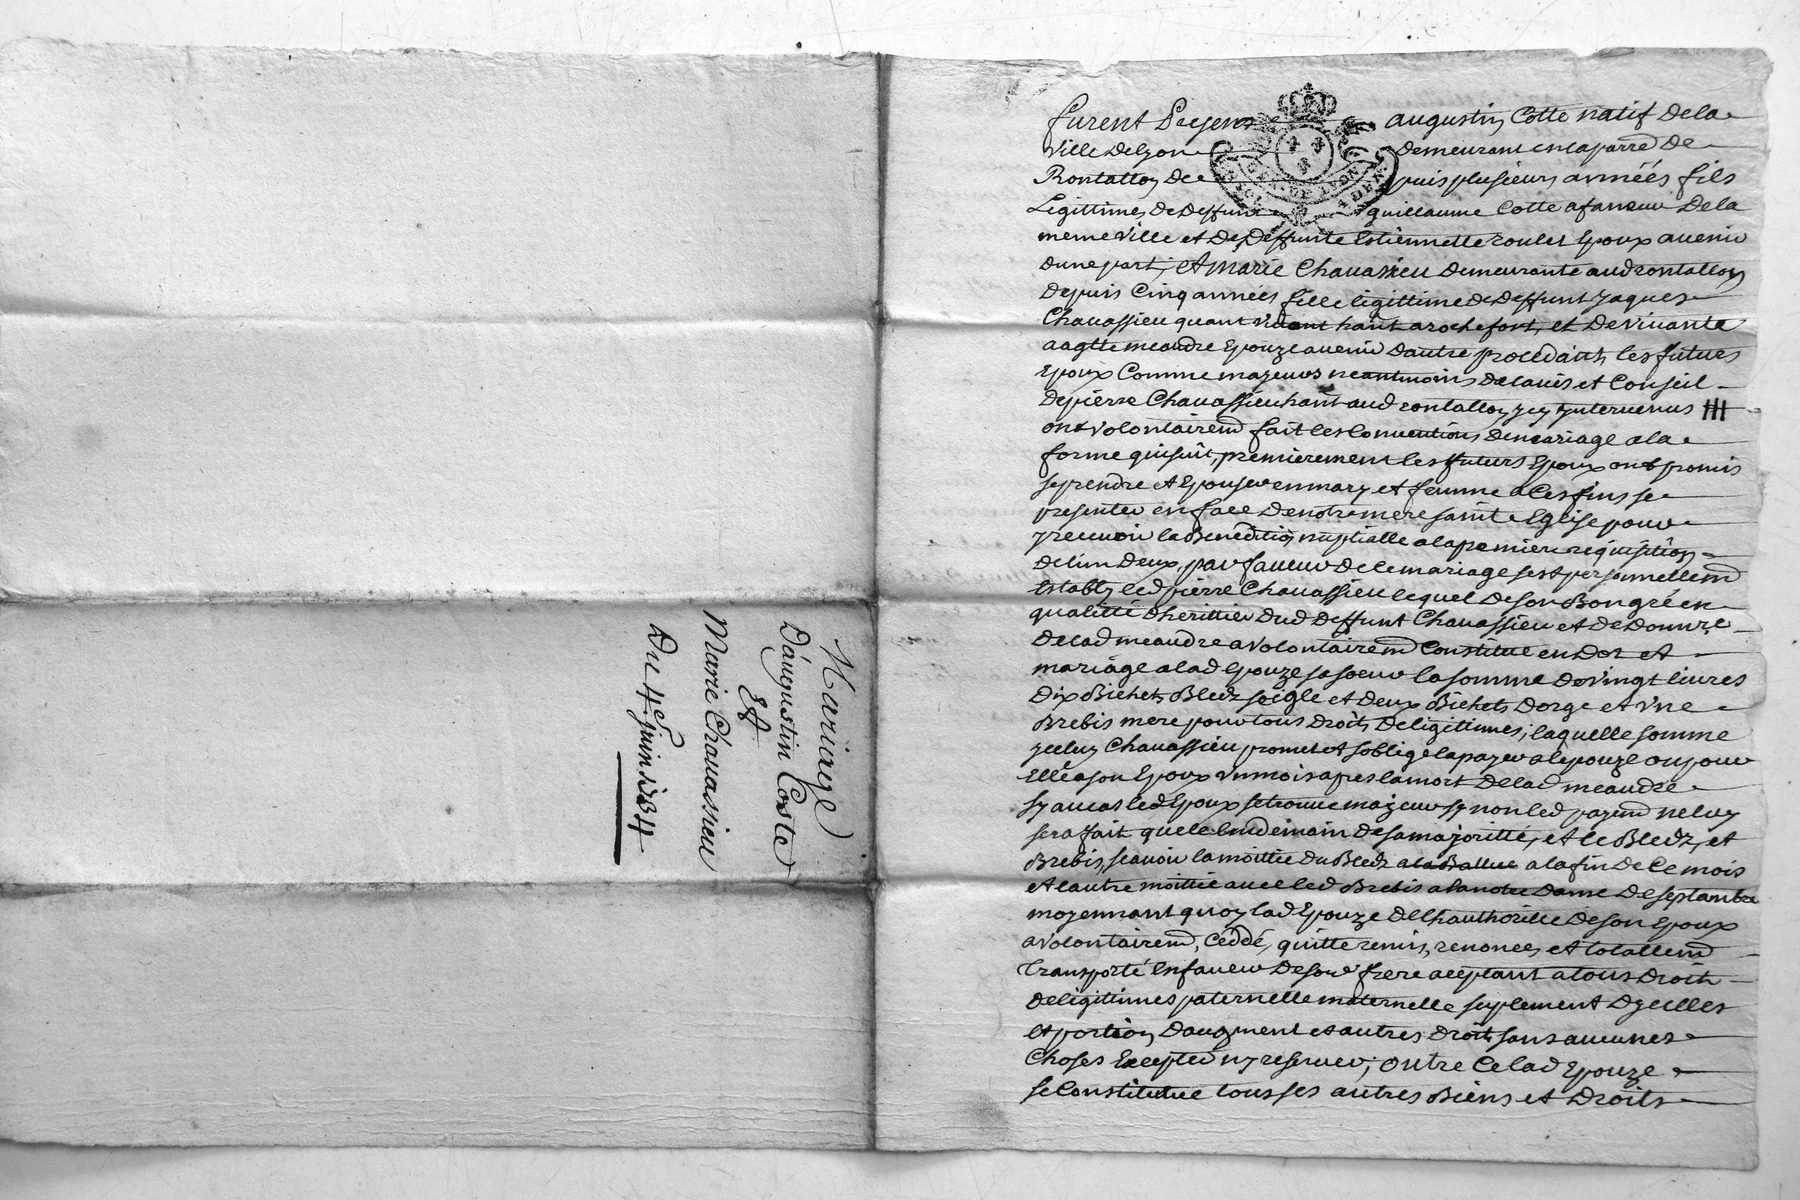 Mariage
D'augustin Coste
Et
Marie Chauassieu
Du 4e. juin 1734
GEN. DE LYON
4 DEN.
furent presens augustin Cotte natif dela
ville de Lyon demeurant en laparre. de
Rontallon de puis plusieurs années fils
Legittimes de Deffunt guillaume Cotte afaneur dela
meme ville et de Deffunte Estiennette roulet Epoux auenir
dune part, et marie Chauassieu demeurante aud rontallon
depuis Cinq années fille legittime de Deffunt jaques
Chauassieu quant viuoit hant a rochefort, et de viuante
aagtte meandre Epouze auenir dautre procedants les futurs
Epoux Comme majeurs neantmoins de lauis et Conseil
de pierre Chauassieu hant aud rontallon jcy jnteruenus
ont volontairemt fait les Conuentions de mariage a la
forme quisuit, premierement les futurs Epoux ont promis
se prendre et Epouser en mary et femme a Ces fins se
presenter en face de notre mere saint e Eglise pour
y receuoir la Benedition nuptialle a la premiere requisition
de lun deux, par faueur de ce mariage sest personnellemt
Estably led pierre Chauassieu lequel de son Bon gré en
qualitté dherittier dud deffunt Chauassieu et de
de lad meandre a volontairemt Constitué en Dot et
mariage a lad Epouze sa soeur la somme de vingt liures
dix Bichets Bledz seigle et deux Bichets dorge et vne
Brebis mere pour tous droits de legittimes, laquelle somme
jceluy Chauassieu promet et soblige la payer a lepouze ou pour
Elle a son Epoux vn mois apres la mort de lad meandre
sy au cas led Epoux se trouue majeur sy non led payemt ne luy
sera fait que le lendemain de sa majoritté, et le Bledz, et
Brebis, scauoir la moittie du Bledz a la fin de Ce mois
et lautre moittie auec led Brebis a la notre Dame de septambre
moyennant quoy lad Epouze de lhauthoritte de son Epoux
a volontairemt, Céddé, quitte remis, renoncé, et totallemt
Transporté en faueur de son frere aceptant a tous droits
de legittimes paternelle maternelle suplement djcelles
et portion daugment et autres droits sans aucunes
choses Excepter ny reseruer, outre Ce lad Epouze
se Constitue tous ses autres Biens et Droits